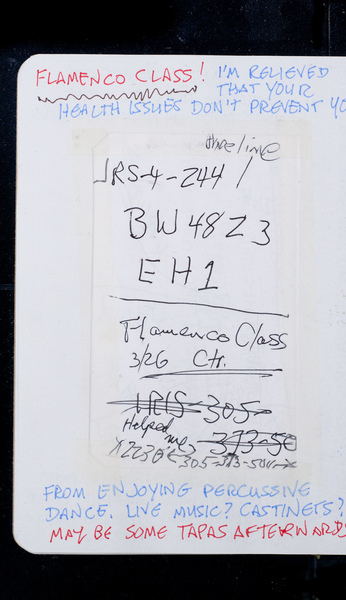 FLAMENCO CLASS! I'M RELIEVED
THAT YOUR
HEALTH ISSUES DON'T PREVENT YO
JRS-4-244/
BW48Z3
EH1
Flamenco Class
3/26 Ctr.
IRIS-305-
Helped me, 373-50
X2230
FROM ENJOYING PERCUSSIVE
DANCE. LIVE MUSIC? CASTINETS?
MAY BE SOME TAPAS AFTERWARDS